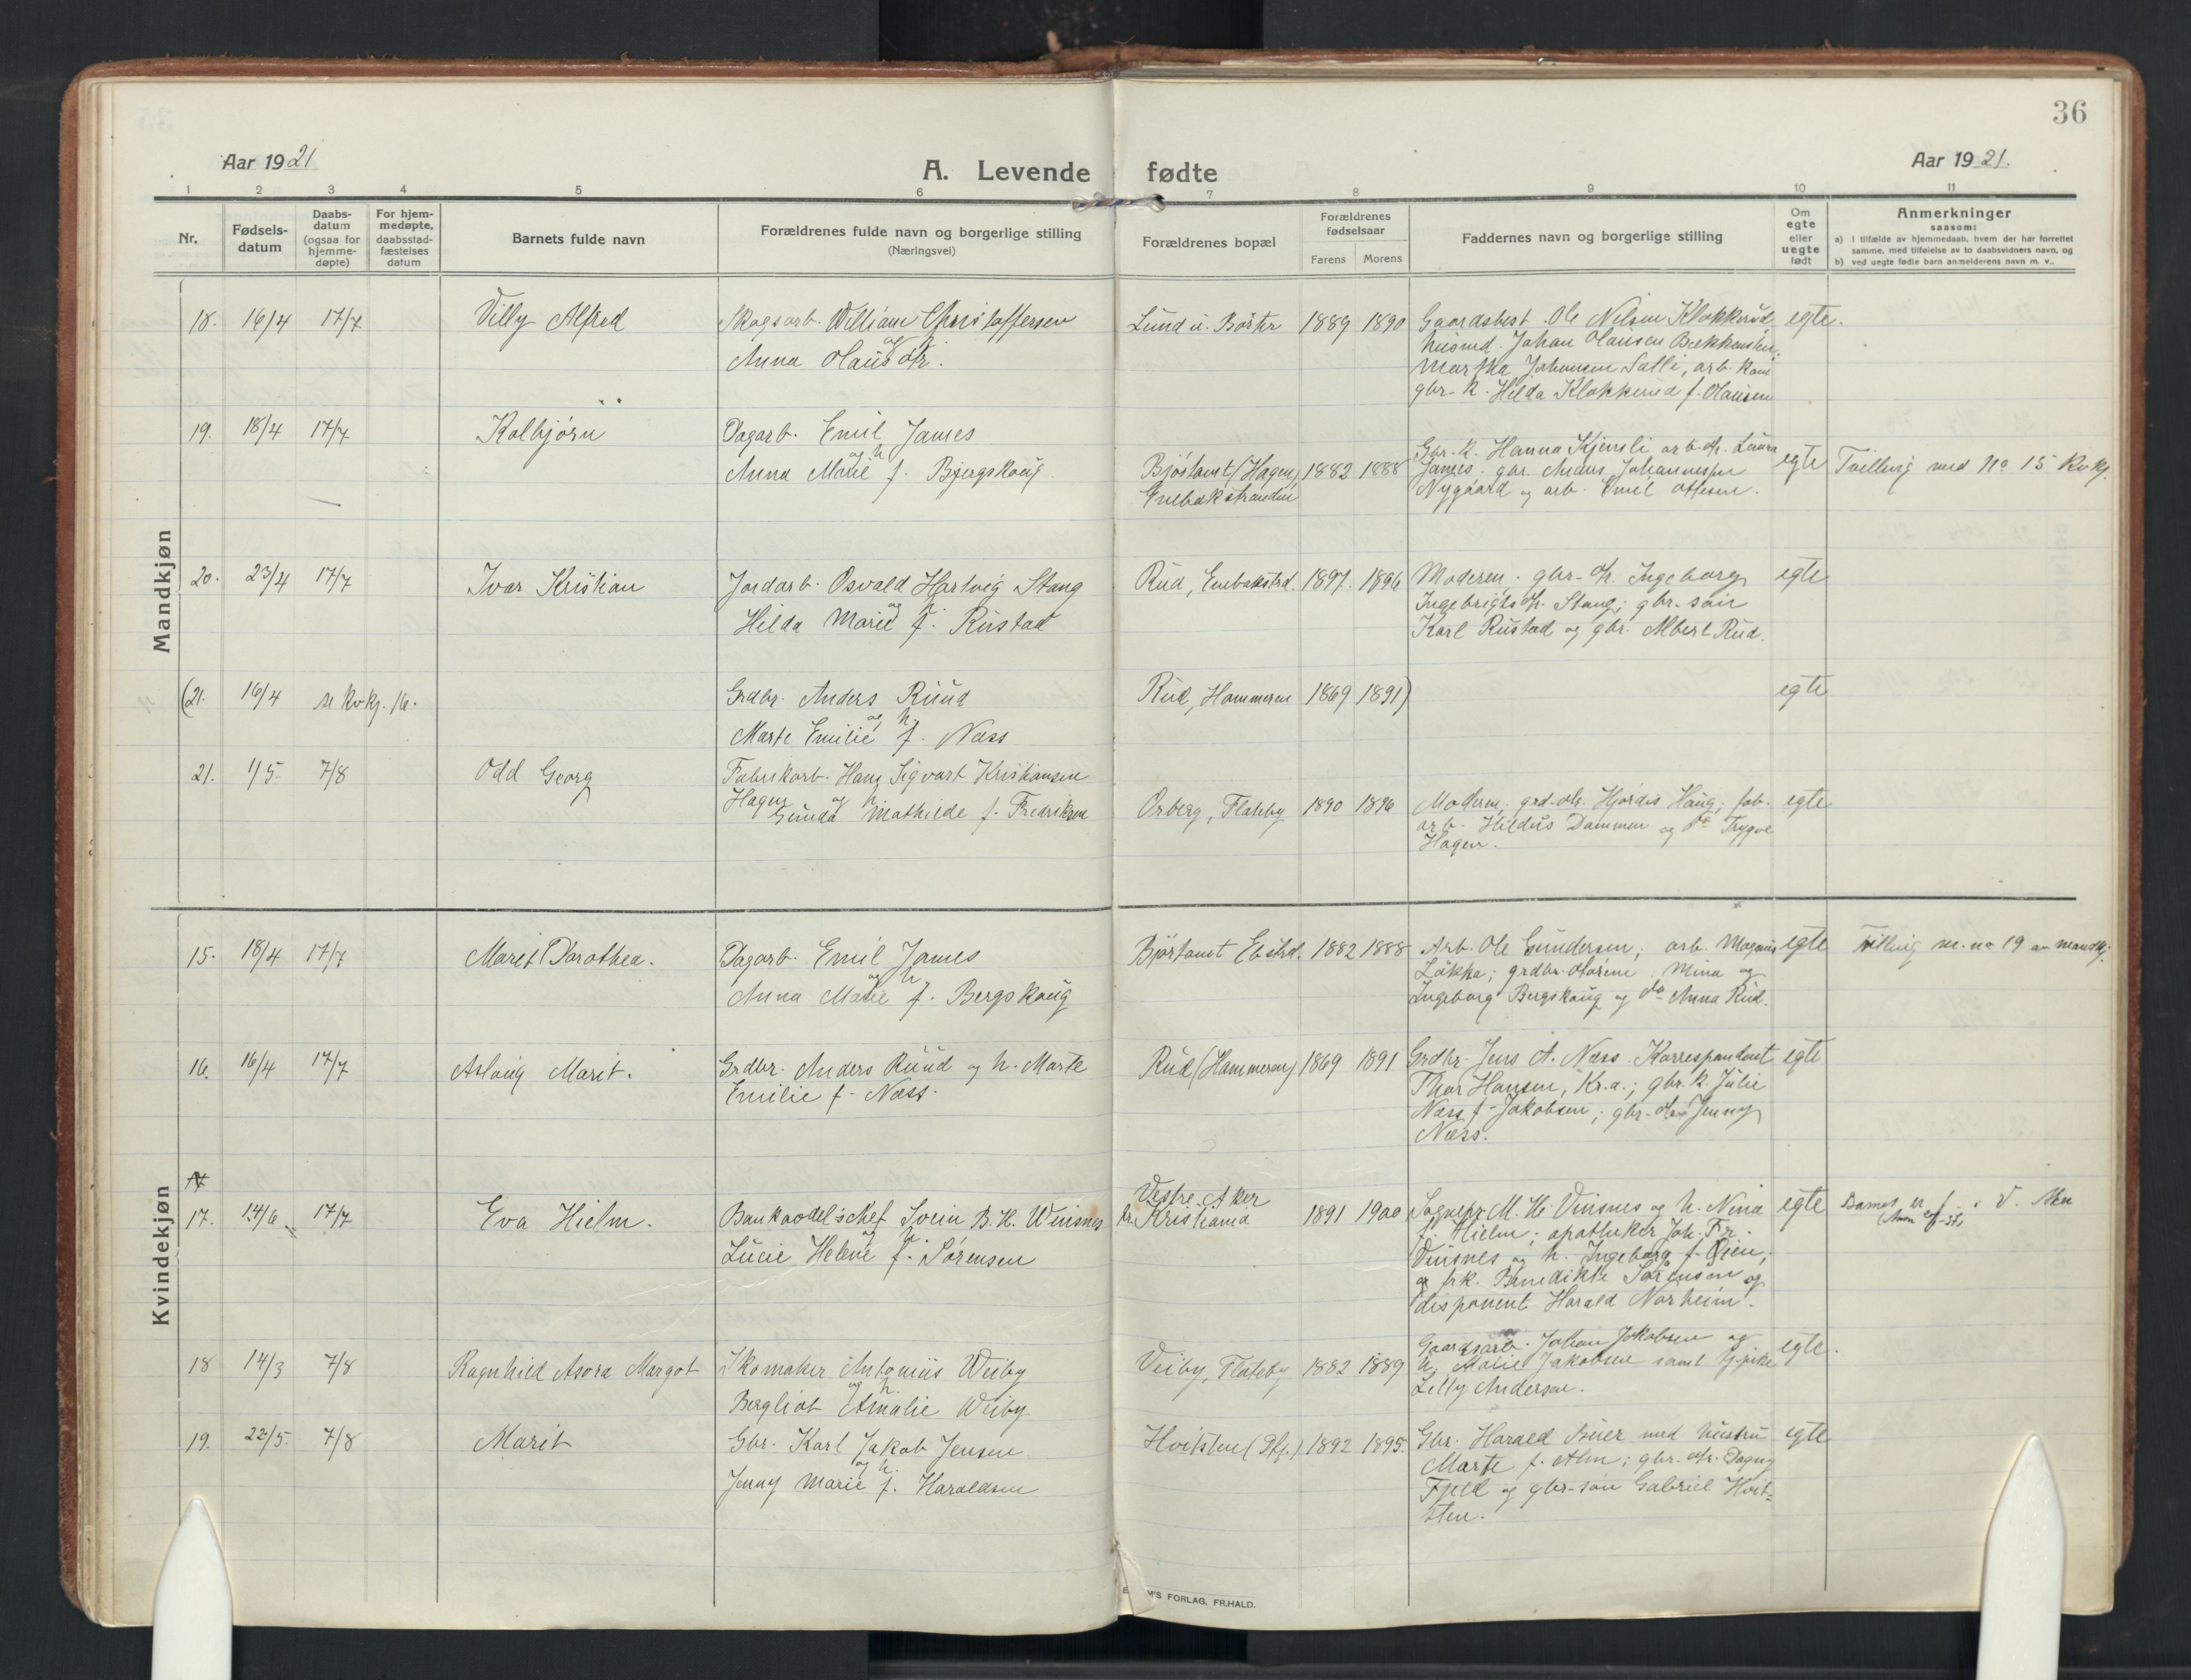 36
Aar 1921
A. Levende fødte
Aar 1921.
1 2 3 4 5 6 7 8 9 10 11
Nr.
Fødsels-
datum
Daabs-
datum
(ogsaa for
hjemme-
døpte)
For hjem-
medøpte,
daabsstad-
fæstelses
datum
Barnets fulde navn
Forældrenes fulde navn og borgerlige stilling
(Næringsvei)
Forældrenes bopæl
Forældrenes
fødselsaar
Farens Morens
Faddernes navn og borgerlige stilling
Om
egte
eller
uegte
født
Anmerkninger
saasom:
a) i tilfælde av hjemmedaab, hvem der har forrettet
samme, med tilføielse av to daabsvidners navn, og
b) ved uegte fødte barn anmelderens navn m. v..
Mandkjøn
18. 16/4 17/7 Villy Alfred
Skogsarb. William Christoffersen
og h.
Anna Olausdtr.
Lund u. Børter 1889 1890
Gaardsbest. Ole Nilsen Klokkerud
husmd. Johan Olausen
Martha Johansen Salli, arb. kone
gbr. k. Hilda Klokkerud f. Olausen
egte.
19. 18/4 17/7 Kolbjörn
Dagarb. Emil James
og h.
Anna Marie f. Bjergskaug
Bjørtomt (Hagen)
Enebakstranden
1882 1888
Gbr. k. Hanna Kjensli arb. dtr. Laura
James. gbr. Anders Johannessen
Nygaard og arb. Emil Ottesen.
egte
Tvilling med No 15 Kvkj.
20. 23/4 17/7 Ivar Kristian
Jordarb. Osvald Hartvig Stang
og h.
Hilda Marie f. Rustad
Rud, Enebakstrd. 1897. 1896
Moderen. gbr-dtr. Ingeborg
Ingebrigtsdtr. Stang; gbr. søn
Karl Rustad og gbr. Albert Rud.
egte
(21. 16/4 se Kvkj. 16.
Grdbr. Anders Ruud
og h.
Marte Emilie f. Næss
Rud, Hammeren 1869 1891)
egte
21. 1/5. 7/8 Odd Georg
Fabrikarb. Hans Sigvart Kristiansen
Hagen og h.
Gunda Mathilde f. Fredriksen
Orberg, Flateby 1890 1896
Moderen. grd-dtr. Hjørdis Haug; fab.
arb. Hildus Dammen og do Trygve
Hagen.
egte
Kvindekjøn
15. 18/4 17/7 Marit Dorothea.
Dagarb. Emil James
og h.
Anna Marie f. Bergskaug
Bjørtomt Ebstrd. 1882 1888
Arb. Ole Gundersen; arb. Magnus
Løkka; grdbr. døtrene Mina og
Ingeborg Bergskaug og do Anna Rud.
egte
Tvilling m. no 19 av mandkj.
16. 16/4 17/7 Aslaug Marit.
Grdbr. Anders Ruud og h. Marte
Emilie f. Næss.
Rud (Hammeren) 1869 1891
Grdbr. Jens A. Næss. Korrespondent
Thor Hansen, Kr.a.; gbr. k. Julie
Næss f. Jakobsen; gbr. dtr. Jenny
Næss.
egte
17
17. 14/6 17/7 Eva Hielm.
Bankavdel.schef Svein B. H. Winsnes
og h.
Lucie Helene f. Sørensen
Vestre Aker
Kristiania
1891 1900
Sognepr. M. H. Vinsnes og h. Nina
f. Hielm; apotheker Joh. Fr.
Vinsnes og h. Ingeborg f. Øien;
og frk. Benedikte Sørensen og
disponent Harald Norheim.
egte
Barnet er f. i V. Aker
18 14/3 7/8 Ragnhild Asora Margot
Skomaker Antonius Weiby
og h.
Bergliot Amalie Weiby
Veiby, Flateby 1882 1889
Gaardsarb. Johan Jakobsen og
h. Marie Jakobsen samt tj.pike
Lilly Andersen.
egte.
19. 22/5. 7/8 Marit
Gbr. Karl Jakob Jensen
og h.
Jenny Marie f. Haraldsen
Hvitsten 1892 1895.
Gbr. Harald Buer med hustru
Marte f. Alm; gbr. dtr. Dagny
Fjeld og gbr-søn Gabriel Hvit-
sten.
egte
M'S FORLAG, FR.HALD.